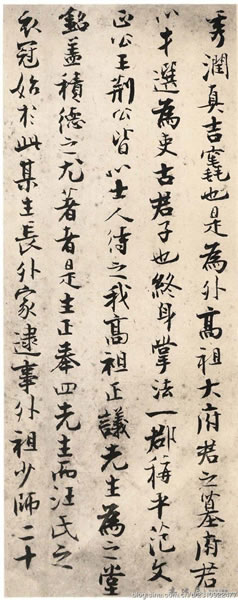 秀潤真吉竁也是為外高祖大府君之墓府君
以才選為吏古君子也終身掌法一郡稱平范文
正公王荊公皆以士人待之我高祖正議先生為之堂
銘蓋積德之尤著者是生正奉四先生而汪氏之
衣冠始於此某生長外家逮事外祖少師二十